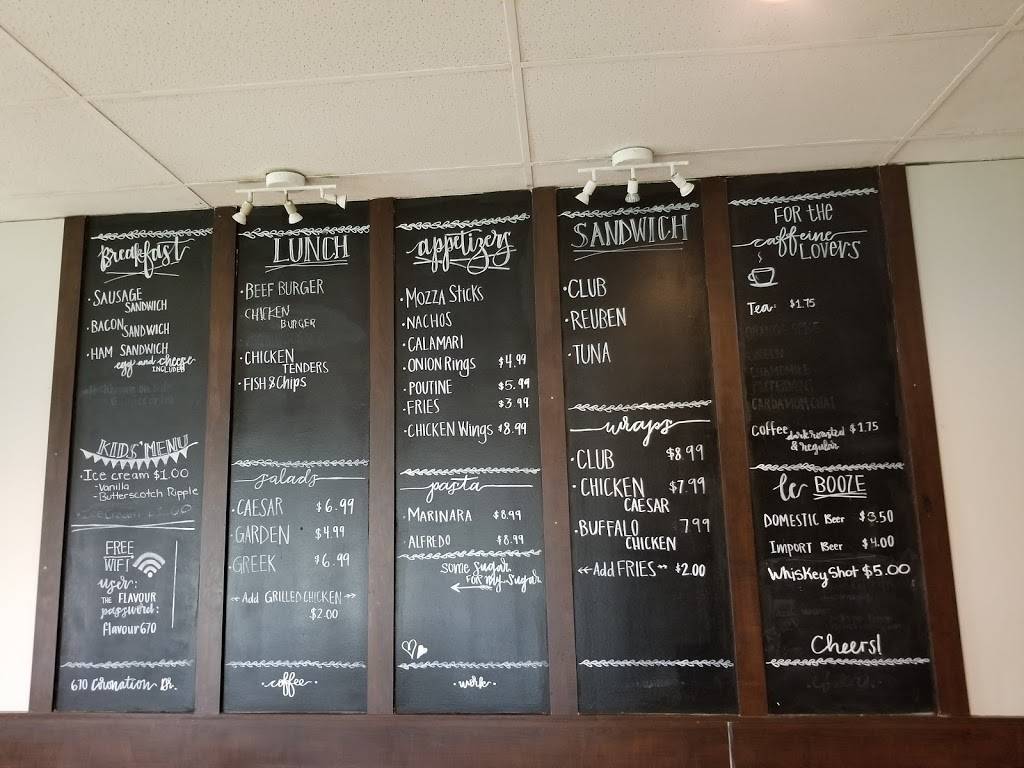 Breakfast
• SAUSAGE
SANDWICH
• BACON
SANDWICH
• HAM SANDWICH
egg and cheese
INCLUDED
KIDS' MENU
• Ice cream $1.00
- Vanilla
- Butterscotch Ripple
FREE
WIFI
user:
THE FLAVOUR
password:
Flavour670
670 Coronation Dr.
LUNCH
• BEEF BURGER
CHICKEN
BURGER
• CHICKEN
TENDERS
• FISH & Chips
salads
• CAESAR $6.99
GARDEN $4.99
• GREEK $6.99
Add GRILLED CHICKEN
$2.00
• coffee •
appetizers
• MOZZA STICKS
• NACHOS
• CALAMARI
• ONION Rings $4.99
• POUTINE $5.99
• FRIES $3.99
• CHICKEN Wings $8.99
pasta
• MARINARA $8.99
• ALFREDO $8.99
some sugar
FOR my sugar
• work •
SANDWICH
• CLUB
• REUBEN
• TUNA
wraps
• CLUB $8.99
• CHICKEN $7.99
CAESAR
• BUFFALO 7.99
CHICKEN
Add FRIES $2.00
FOR the
caffeine
LOVERS
Tea: $1.75
Coffee dark roasted $1.75
& regular
le BOOZE
DOMESTIC Beer $3.50
IMPORT Beer $4.00
Whiskey Shot $5.00
Cheers!